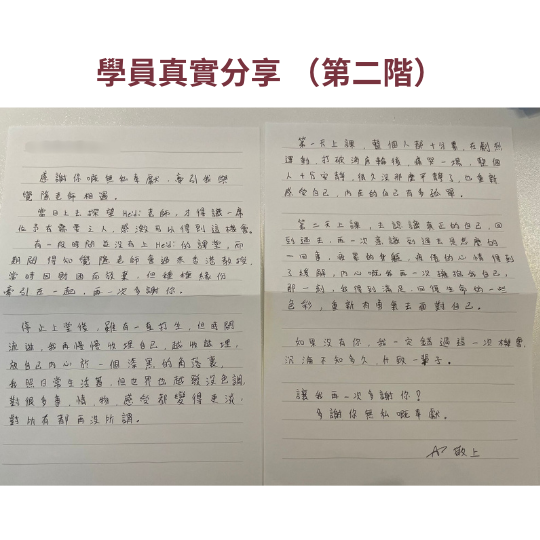 學員真實分享 （第二階）
感謝你嘅無私奉獻，牽引我與
覺隱老師相遇。
當日上去探望Heidi老師，才得識一席
有一段時間並沒有上Heidi的課堂，而
期間得知覺隱老師會過來香港教授，
當時因財困而放棄，但種種緣份
牽引在一起，再一次多謝你。
停止上堂後，雖有一直打坐，但時間
流逝，我再慢慢收埋自己，越收越埋，
放自己內心於一個漆黑的角落裏，
我照日常生活着，但世界也越難沒色調，
對很多事，情，物，感受都變得更淡，
對所有都再沒所謂。
第一天上課，整個人都十分累，在劇烈
運動，打破海底輪後，痛哭一場，整個
人十分安靜，很久沒那麼平靜了，也重新
感受自己，內在的自己有多孤單。
第二天上課，去認識真正的自己，回
到過去，再一次意識到過去是怎麼的
一回事，
了緩解，內心呢我再一次擁抱我自己，
那一刻，我得到滿足，回復生命的一些
色彩，重新有勇氣去面對自己。
如果沒有你，我一定錯過這一次機會
沉淪不知多久， 一輩子。
讓我再一次多謝你？
多謝你無私嘅奉獻。
敬上